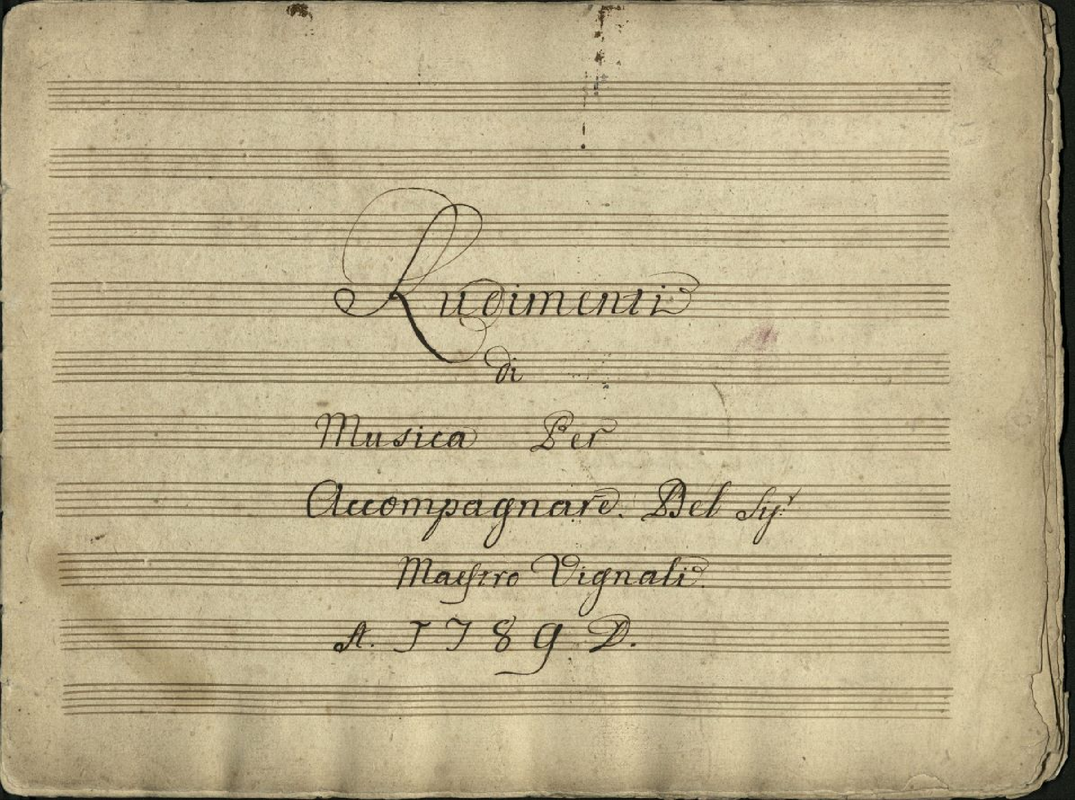 Rudimenti
di
Musica Per
Accompagnare. Del Sig.r
Maestro Vignali.
A. 1789 D.